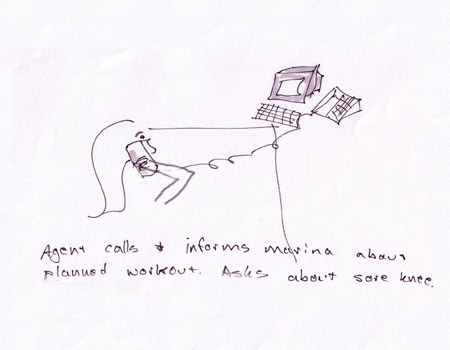 Agent calls & informs marina about
planned workout. Asks about sore knee.